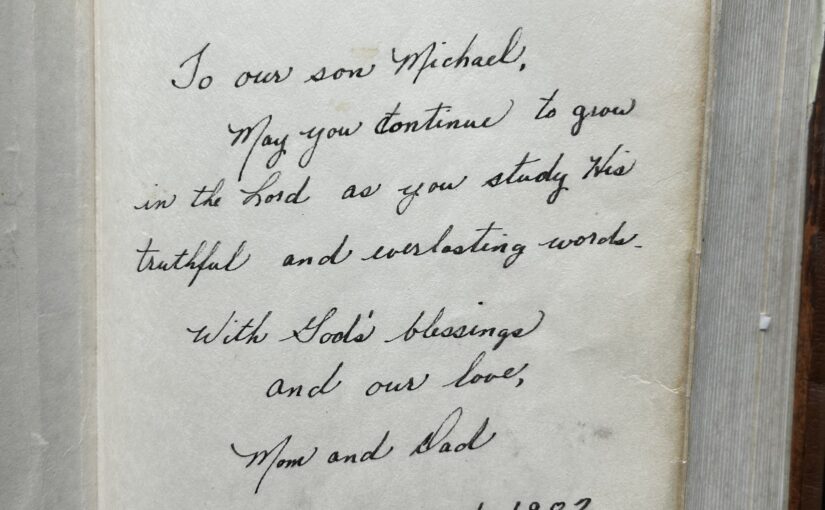 To our son Michael,
May you continue to grow
in the Lord as you study His
truthful and everlasting words.
With God's blessings
and our love,
Mom and Dad